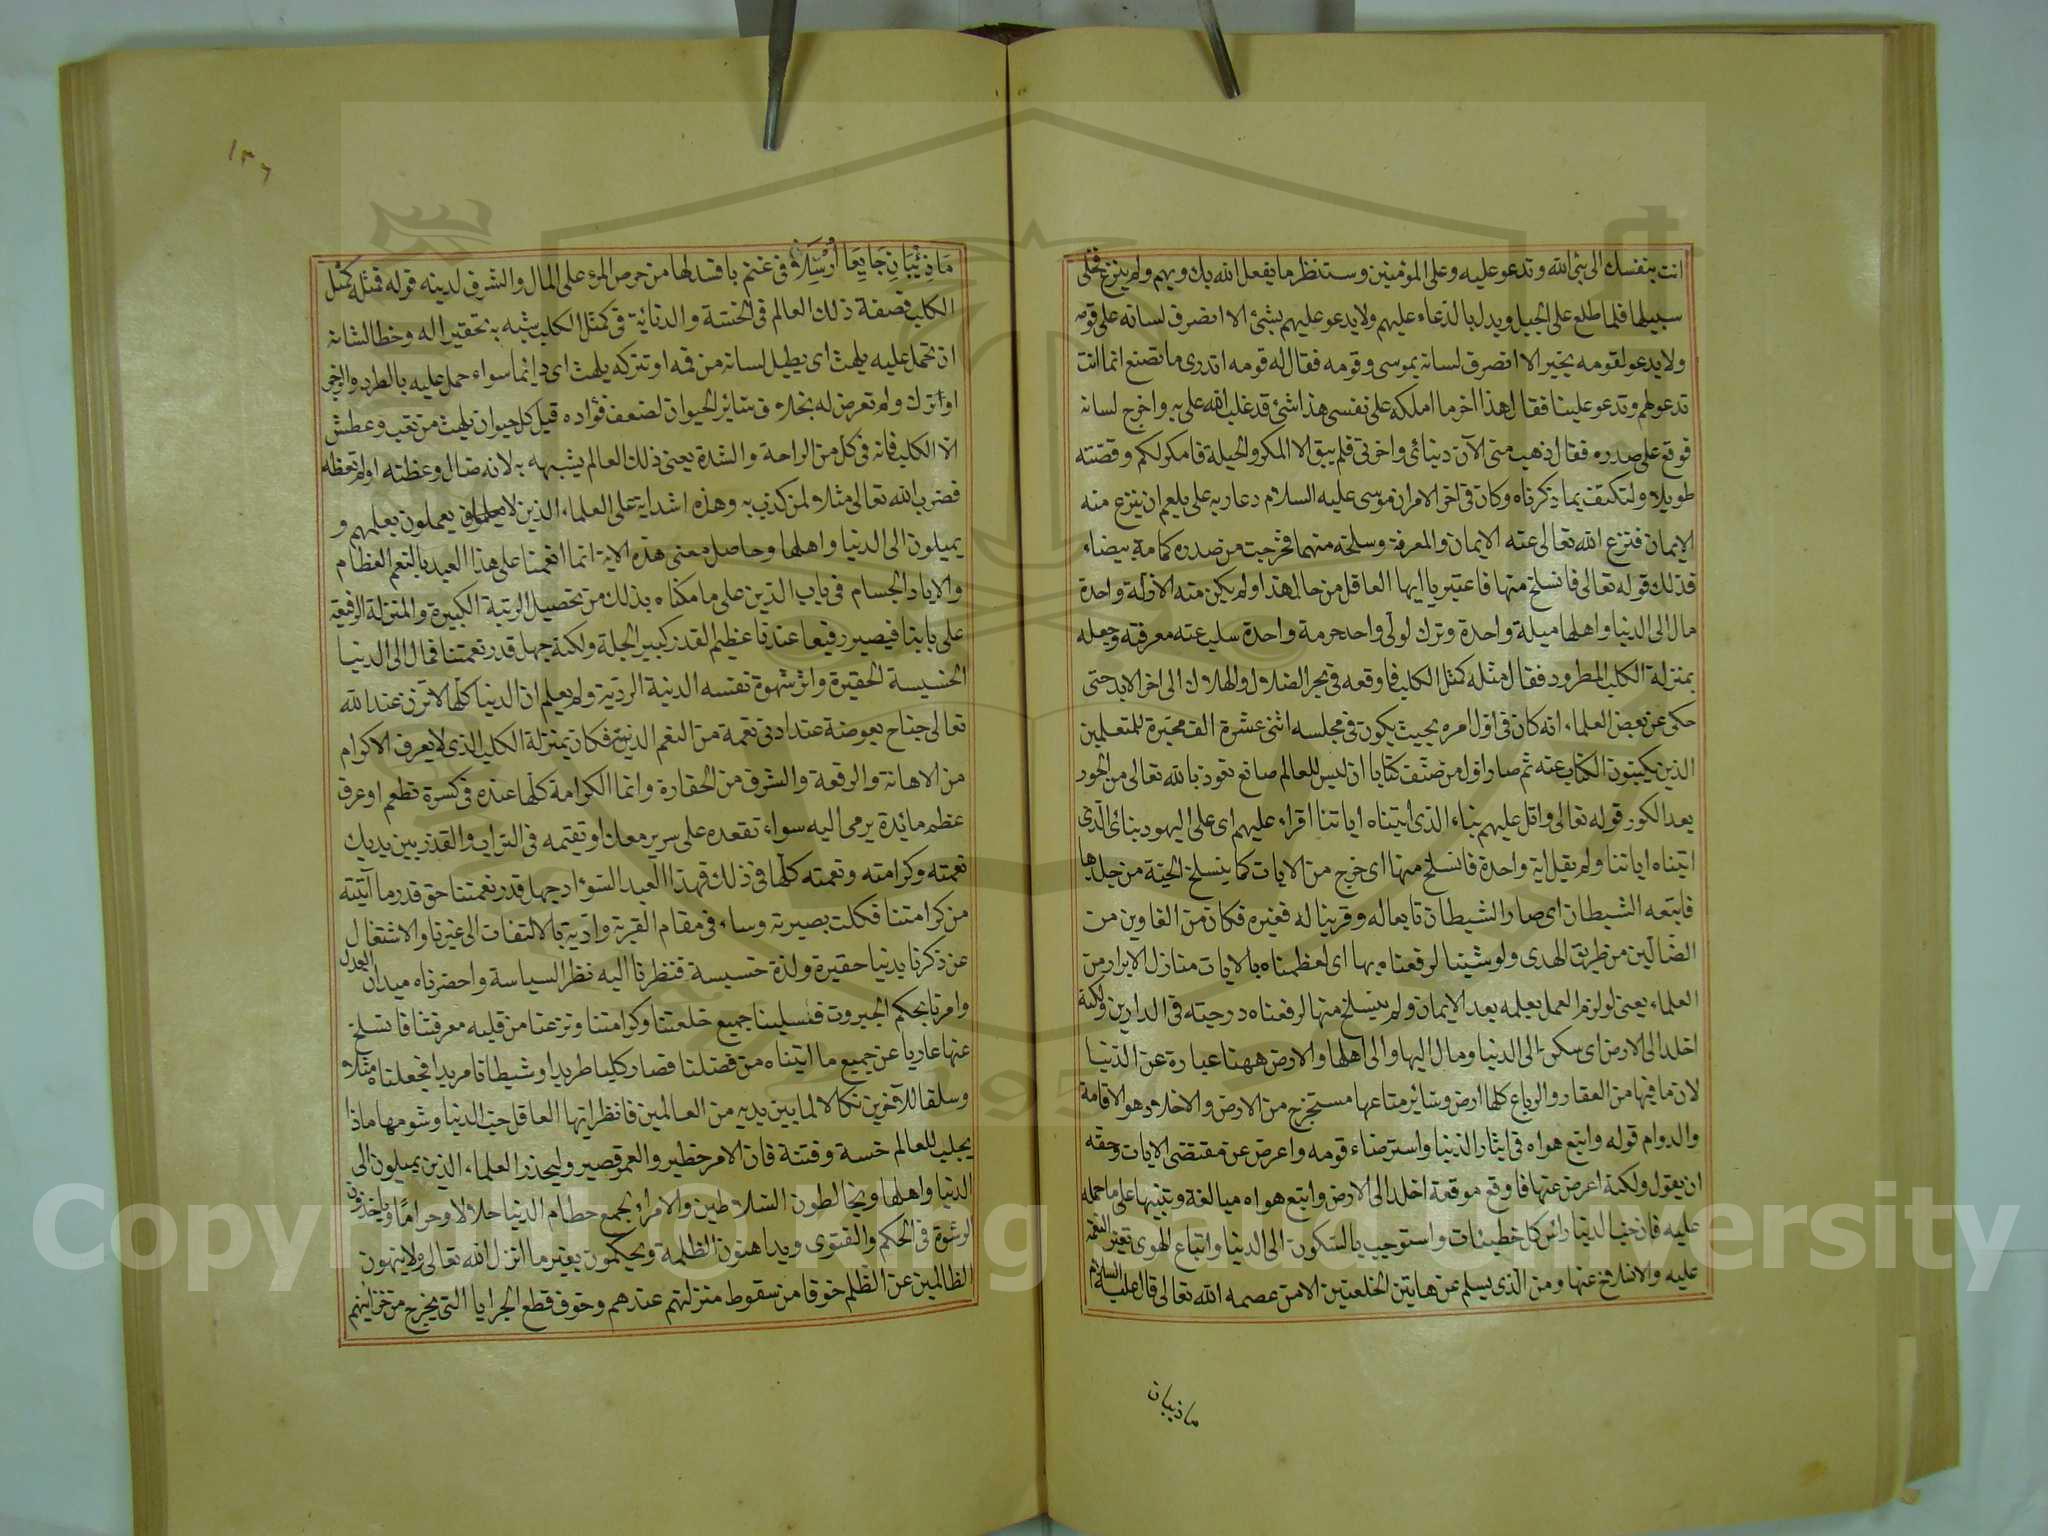 انت بنفسك الى بنى الله وتدعو عليه وعلى المؤمنين وستنظر ما يفعل الله بك وبهم ولم ينزع فخلى
سبيلها فلما طلع على الجبل وبدل بالدعاء عليهم ولا يدعو عليهم بشئ الا انصرف لسانه على قومه
ولا يدعو لقومه بخير الا انصرف لسانه بموسى وقومه فقال له قومه اتدرى ما تصنع انما انت
تدعولهم وتدعو علينا فقال هذا اخر ما املكه على نفسى هذا شئ قد غلب الله على به واخرج لسانه
فوقع على صدره فقال ذهب منى الآن دنيائى واخرتى فلم يبق الا المكر والحيلة فامكر لكم وقصته
طويلة ولنكتف بما ذكرناه وكان فى اخر الامر ان موسى عليه السلام دعا ربه على بلعم ان ينزع منه
الايمان فنزع الله تعالى عنه الايمان والمعرفة وسلخه منهما فخرجت من صدره كمامة بيضاء
فذلك قوله تعالى فانسلخ منها فاعتبر يا ايها العاقل من حال هذا ولم يكن منه الا زلة واحدة
مال الى الدنيا واهلها ميلة واحدة وترك لولى واحد حرمة واحدة سلب عنه معرفته وجعله
بمنزلة الكلب المطرود فقال مثله كمثل الكلب فاوقعه فى بحر الضلال والهلاك الى اخر الابد حتى
حكى عن بعض العلماء انه كان فى اول امره بحيث يكون فى مجلسه اثنى عشرة الف محبرة للمتعلمين
الذين يكتبون الكتاب عنه ثم صار اول من صنف كتابا ان ليس للعالم صانع نعوذ بالله تعالى من الحور
بعد الكور قوله تعالى واتل عليهم نباء الذى اتيناه اياتنا اقراء عليهم اى على اليهود بنائ الذى
اتيناه اياتنا ولم يقل اية واحدة فانسلخ منها اى خرج من الايات كما ينسلخ الحية من جلدها
فاتبعه الشيطان اى صار الشيطان تابعا له وقرينا له فغيره فكان من الغاوين من
الضالين من طريق الهدى ولو شيئنا لرفعناه بها اى لعظمناه بالايات منازل الابرار من
العلماء يعنى لو لزم العمل بعلمه بعد الايمان ولم ينسلخ منها لرفعناه درجته فى الدارين ولكنه
اخلد الى الارض اى سكن الى الدنيا ومال اليها والى اهلها والارض ههنا عبارة عن الدنيا
لان ما فيها من العقار والرباع كلها ارض وسائر متاعها مستخرج من الارض والاخلاد هو الاقامة
والدوام قوله واتبع هواه فى ايثار الدنيا واسترضاء قومه واعرض عن مقتضى الايات وحقه
ان يقول ولكنه اعرض عنها فاوقع موقعة اخلد الى الارض واتبع هواه مبالغة وتنبيها على ما حمله
عليه فان حب الدنيا رأس كل خطيئات واستوجب بالسكون الى الدنيا واتباع الهوى تغيير النعمة
عليه والانسلاخ عنها ومن الذى يسلم عن هاتين الخلعتين الا من عصمه الله تعالى قال عليه السلام
ماذيبان
١٣٦
مَا ذِئْبَانِ جَايِعَا أُرْسِلَا فى غنم بافسد لها من حرص المرء على المال والشرف لدينه قوله فمثله كمثل
الكلب فصفة ذلك العالم فى الخسة والدنائة فى كمثل الكلب شبه به تحقيرا له وخطا لشانه
ان تحمل عليه يلهث اى يطيل لسانه من فمه او تتركه يلهث اى دائما سواء حمل عليه بالطرد والزجر
او اترك ولم تعرض له بخلاف سائر الحيوان لضعف فؤاده قيل كل حيوان يلهث من تعب وعطش
الا الكلب فانه فى كل من الراحة والشدة يعنى ذلك العالم يشبهه به لانه ضال وعظته اولم تعظه
فضرب الله تعالى مثلا لمن كذب به وهذه اشد اية على العلماء الذين لا يعملون بعلمهم و
يميلون الى الدنيا واهلها وحاصل معنى هذه الاية انما انعمنا على هذا العبد بالنعم العظام
والاياد الجسام فى باب الدين على ما مكناه بذلك من تحصيل الرتبة الكبيرة والمنزلة الرفيعة
على بابنا فيصير رفيعا عندنا عظيم القدر كبير الجلة ولكنه جهل قدر نعمتنا فمال الى الدنيا
الخسيسة الحقيرة واثر شهوة نفسه الدنية الردية ولم يعلم ان الدنيا كلها لا تزن عند الله
تعالى جناح بعوضة عند ادنى نعمة من النعم الدينى فكان بمنزلة الكلب الذى لا يعرف الاكرام
من الاهانة والرفعة والشرف من الحقارة وانما الكرامة كلها عنده فى كسرة تطعم او عرق
عظم مائدة يرمى اليه سواء تقعده على سرير معك او تقيمه فى التراب والقذر بين يديك
نعمته وكرامته ونعمته كلها فى ذلك فهذا العبد السوء اذ جهل قدر نعمتنا حق قدر ما آتيته
من كرامتنا فكلت بصيرته وساء فى مقام القربة وادبه بالالتفات الى غيرنا والاشتغال
عن ذكرنا بدنيا حقيرة ولذة خسيسة فنظرنا اليه نظر السياسة واحضرناه ميدان العدل
وامرنا بحكم الجبروت فسلبنا جميع خلعتنا وكرامتنا ونزعنا من قلبه معرفتنا فانسلخ
عنها عاريا عن جميع ما اتيناه من فضلنا فصار كلبا طريدا وشيطانا مريدا فجعلناه مثلا
وسلفا للآخرين نكالا لما بين يديه من العالمين فانظر ايها العاقل حب الدنيا وشومها ماذا
يجلب للعالم خسة وفتنة فان الامر خطير والعمر قصير وليحذر العلماء الذين يميلون الى
الدنيا واهلها ويخالطون السلاطين والامراء بجمع حطام الدنيا حلالا وحراما وياخذون
الرشوة فى الحكم والفتوى ويداهنون الظلمة ويحكمون بغير ما انزل الله تعالى ولا ينهون
الظالمين عن الظلم خوفا من سقوط منزلتهم عندهم وخوف قطع الجرايا التى يخرج من خزائنهم
Copyright © King Saud University